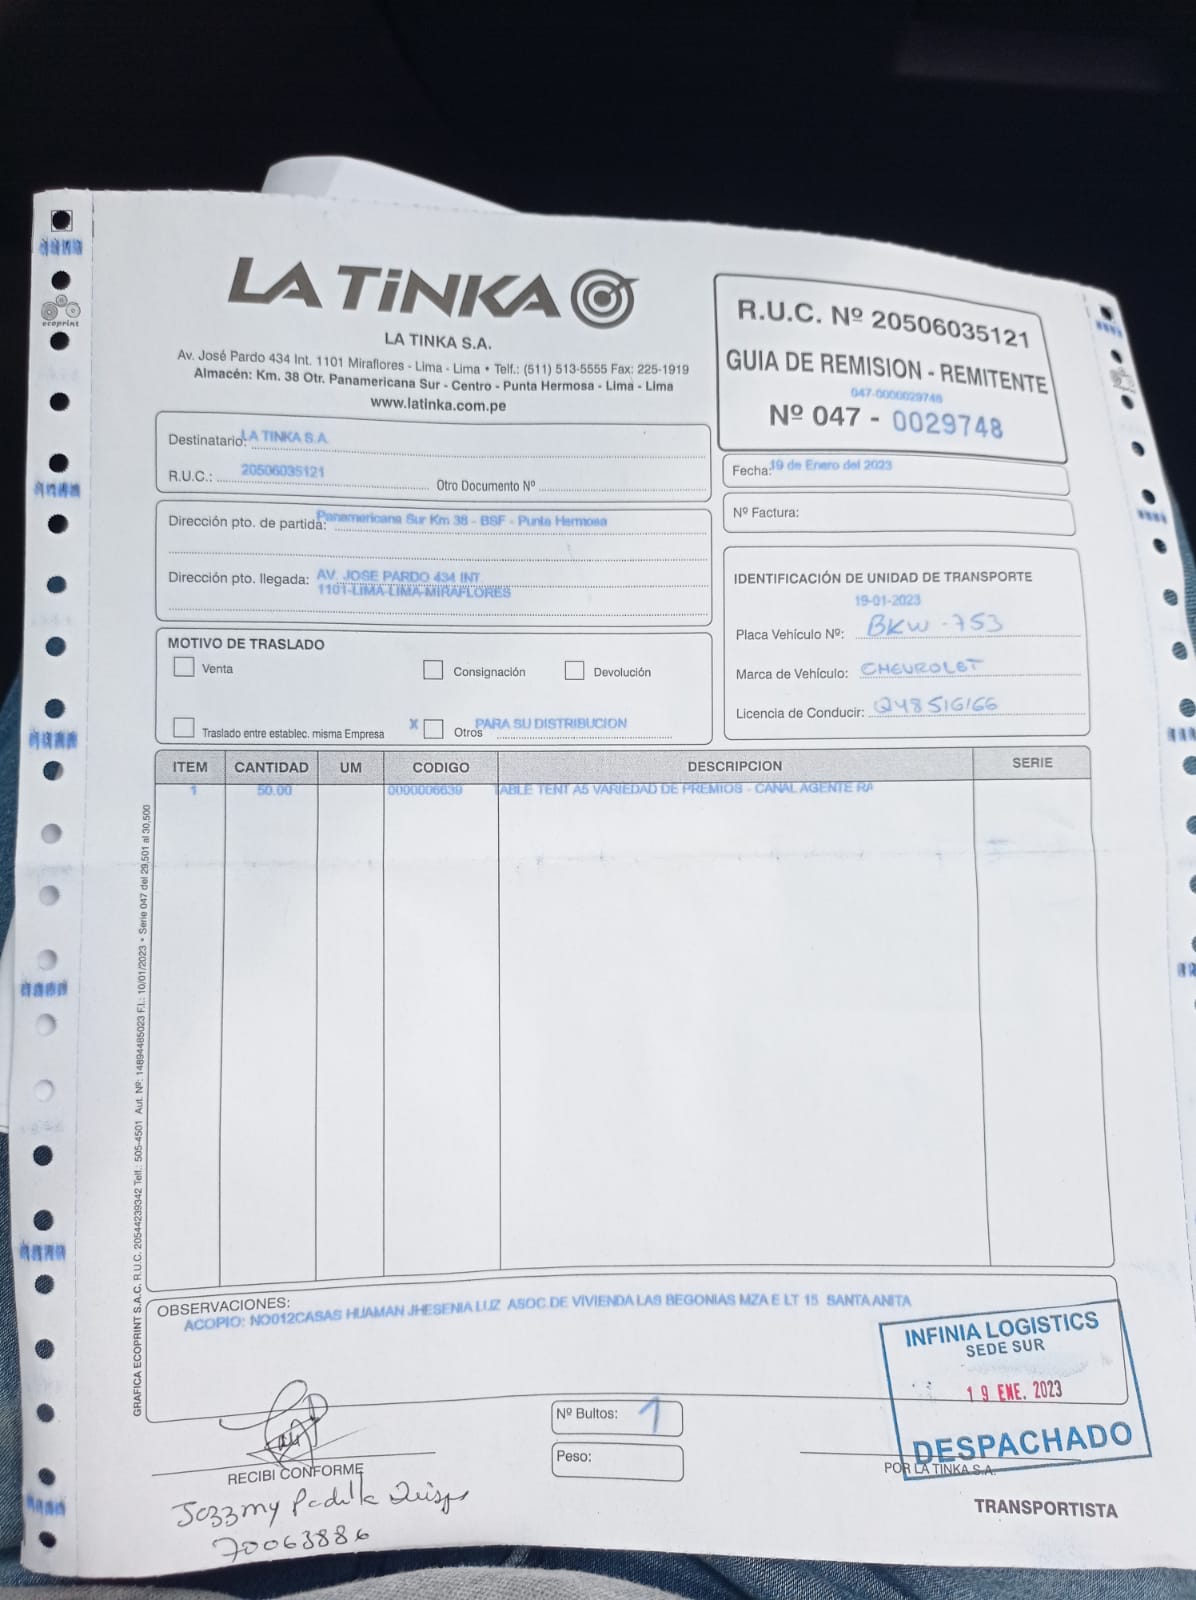 LA TiNKA
LA TINKA S.A.
Av. José Pardo 434 Int. 1101 Miraflores - Lima - Lima • Telf.: (511) 513-5555 Fax: 225-1919
Almacén: Km. 38 Otr. Panamericana Sur - Centro - Punta Hermosa - Lima - Lima
www.latinka.com.pe
R.U.C. Nº 20506035121
GUIA DE REMISION - REMITENTE
047-0000029748
Nº 047 - 0029748
ecoprint
Destinatario: LA TINKA S.A.
R.U.C.: 20506035121 Otro Documento Nº
Fecha: 19 de Enero del 2023
Nº Factura:
Dirección pto. de partida: Panamericana Sur Km 38 - BSF - Punta Hermosa
Dirección pto. llegada: AV. JOSE PARDO 434 INT.
1101-LIMA-LIMA-MIRAFLORES
IDENTIFICACIÓN DE UNIDAD DE TRANSPORTE
19-01-2023
Placa Vehículo Nº: BKW-753
Marca de Vehículo: CHEVROLET
Licencia de Conducir: Q48516166
MOTIVO DE TRASLADO
Venta Consignación Devolución
Traslado entre establec. misma Empresa X Otros PARA SU DISTRIBUCION
ITEM CANTIDAD UM CODIGO DESCRIPCION SERIE
1 50.00 0000006639 TABLE TENT A5 VARIEDAD DE PREMIOS - CANAL AGENTE RA
GRAFICA ECOPRINT S.A.C. R.U.C. 20544239342 Telf.: 505-4501 Aut. Nº: 14894485023 F.I.: 10/01/2023 • Serie 047 del 29,501 al 30,500
OBSERVACIONES:
ACOPIO: NO012CASAS HUAMAN JHESENIA LUZ ASOC.DE VIVIENDA LAS BEGONIAS MZA E LT 15 SANTA ANITA
INFINIA LOGISTICS
SEDE SUR
19 ENE. 2023
DESPACHADO
Nº Bultos: 1
Peso:
RECIBI CONFORME
Jozzmy Padilla Quispe
70063886
POR LA TINKA S.A.
TRANSPORTISTA